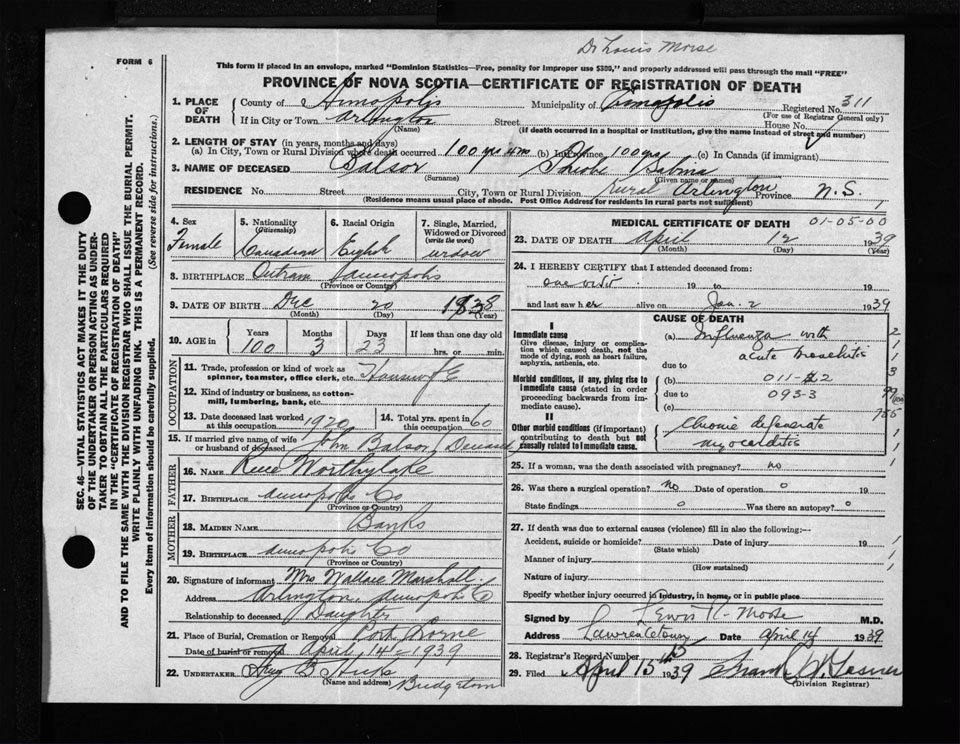 Dr Louis Morse
FORM 6
This form if placed in an envelope, marked "Dominion Statistics—Free, penalty for improper use $300," and properly addressed will pass through the mail "FREE"
PROVINCE OF NOVA SCOTIA—CERTIFICATE OF REGISTRATION OF DEATH
1. PLACE OF DEATH County of Annapolis Municipality of Annapolis Registered No. 311
(For use of Registrar General only)
If in City or Town Arlington Street House No.
(Name) (If death occurred in a hospital or institution, give the name instead of street and number)
2. LENGTH OF STAY (in years, months and days)
(a) In City, Town or Rural Division where death occurred 100 yrs 4 m (b) In Province 100 yrs (c) In Canada (if immigrant)
3. NAME OF DECEASED Balsor Phebe Selma
(Surname) (Given name or names)
RESIDENCE No. Street City, Town or Rural Division Rural Arlington Province N.S.
(Residence means usual place of abode. Post Office Address for residents in rural parts not sufficient) 1
4. Sex Female
5. Nationality (Citizenship) Canadian
6. Racial Origin
7. Single, Married, Widowed or Divorced (write the word) widow
8. BIRTHPLACE Outram Annapolis
(Province or Country)
9. DATE OF BIRTH Dec 20 1838
(Month) (Day) (Year)
10. AGE in Years Months Days If less than one day old
100 3 23 hrs. or min.
OCCUPATION
11. Trade, profession or kind of work as spinner, teamster, office clerk, etc. Housewife
12. Kind of industry or business, as cotton-mill, lumbering, bank, etc.
13. Date deceased last worked at this occupation 1920
14. Total yrs. spent in this occupation 60
15. If married give name of wife or husband of deceased John Balsor (Deceased)
FATHER
16. NAME Rene Worthylake
17. BIRTHPLACE Annapolis Co
(Province or Country)
MOTHER
18. MAIDEN NAME Banks
19. BIRTHPLACE Annapolis Co
(Province or Country)
20. Signature of informant Mrs Wallace Marshall
Address Arlington, Annapolis Co
Relationship to deceased Daughter
21. Place of Burial, Cremation or Removal Port Lorne
Date of burial or removal April 14 - 1939
22. UNDERTAKER Hicks
(Name and address) Bridgetown
MEDICAL CERTIFICATE OF DEATH 01-05-00
23. DATE OF DEATH April 12 1939
(Month) (Day) (Year)
24. I HEREBY CERTIFY that I attended deceased from:
one visit 19 to 19
and last saw her alive on Jan. 2 1939
CAUSE OF DEATH
I
Immediate cause
Give disease, injury or complication which caused death, not the mode of dying, such as heart failure, asphyxia, asthenia, etc.
(a) Influenza with
acute bronchitis
due to
Morbid conditions, if any, giving rise to immediate cause (stated in order proceeding backwards from immediate cause).
(b) 011-2
due to 093-3
(c)
II
Other morbid conditions (if important) contributing to death but not causally related to immediate cause.
Chronic degenerate
myocarditis
25. If a woman, was the death associated with pregnancy? no
26. Was there a surgical operation? No Date of operation 0 19
State findings 0 Was there an autopsy? 0
27. If death was due to external causes (violence) fill in also the following:—
Accident, suicide or homicide? Date of injury 19
(State which)
Manner of injury
(How sustained)
Nature of injury
Specify whether injury occurred in industry, in home, or in public place
Signed by Lewis R. Morse M.D.
Address Lawrencetown Date April 14 1939
28. Registrar's Record Number
29. Filed April 15th 1939 Frank W.
(Division Registrar)
SEC. 46—VITAL STATISTICS ACT MAKES IT THE DUTY
OF THE UNDERTAKER OR PERSON ACTING AS UNDER-
TAKER TO OBTAIN ALL THE PARTICULARS REQUIRED
IN THE "CERTIFICATE OF REGISTRATION OF DEATH"
AND TO FILE THE SAME WITH THE DIVISION REGISTRAR WHO SHALL ISSUE THE BURIAL PERMIT.
WRITE PLAINLY WITH UNFADING INK. THIS IS A PERMANENT RECORD.
Every item of information should be carefully supplied. (See reverse side for instructions.)